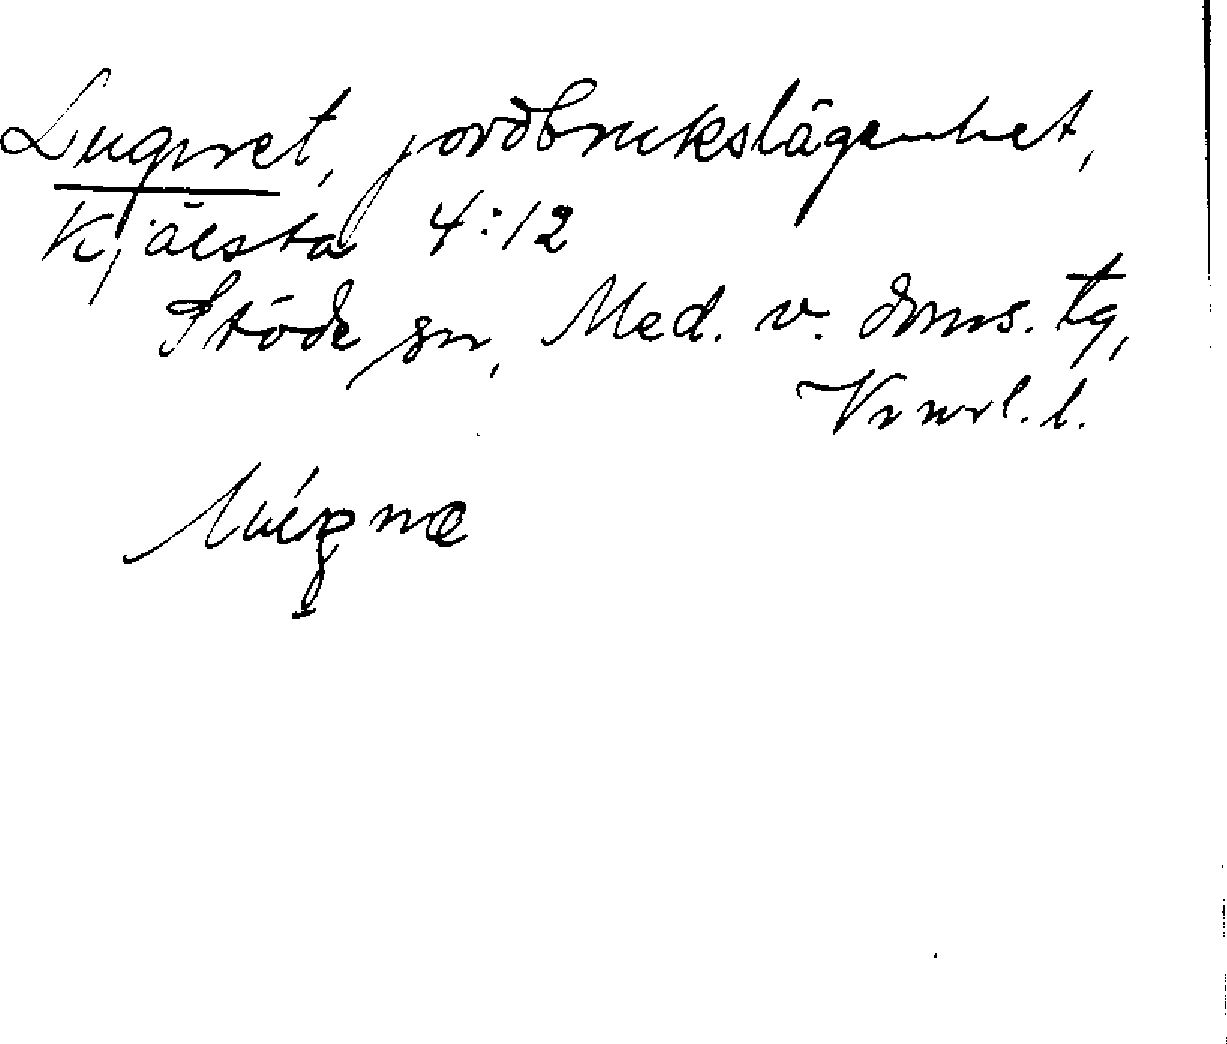 Lugnet, jordbrukslägenhet,
Kjälsta 4:12
Stöde sn, Med. v. doms. tg,
Vrnrl. l.